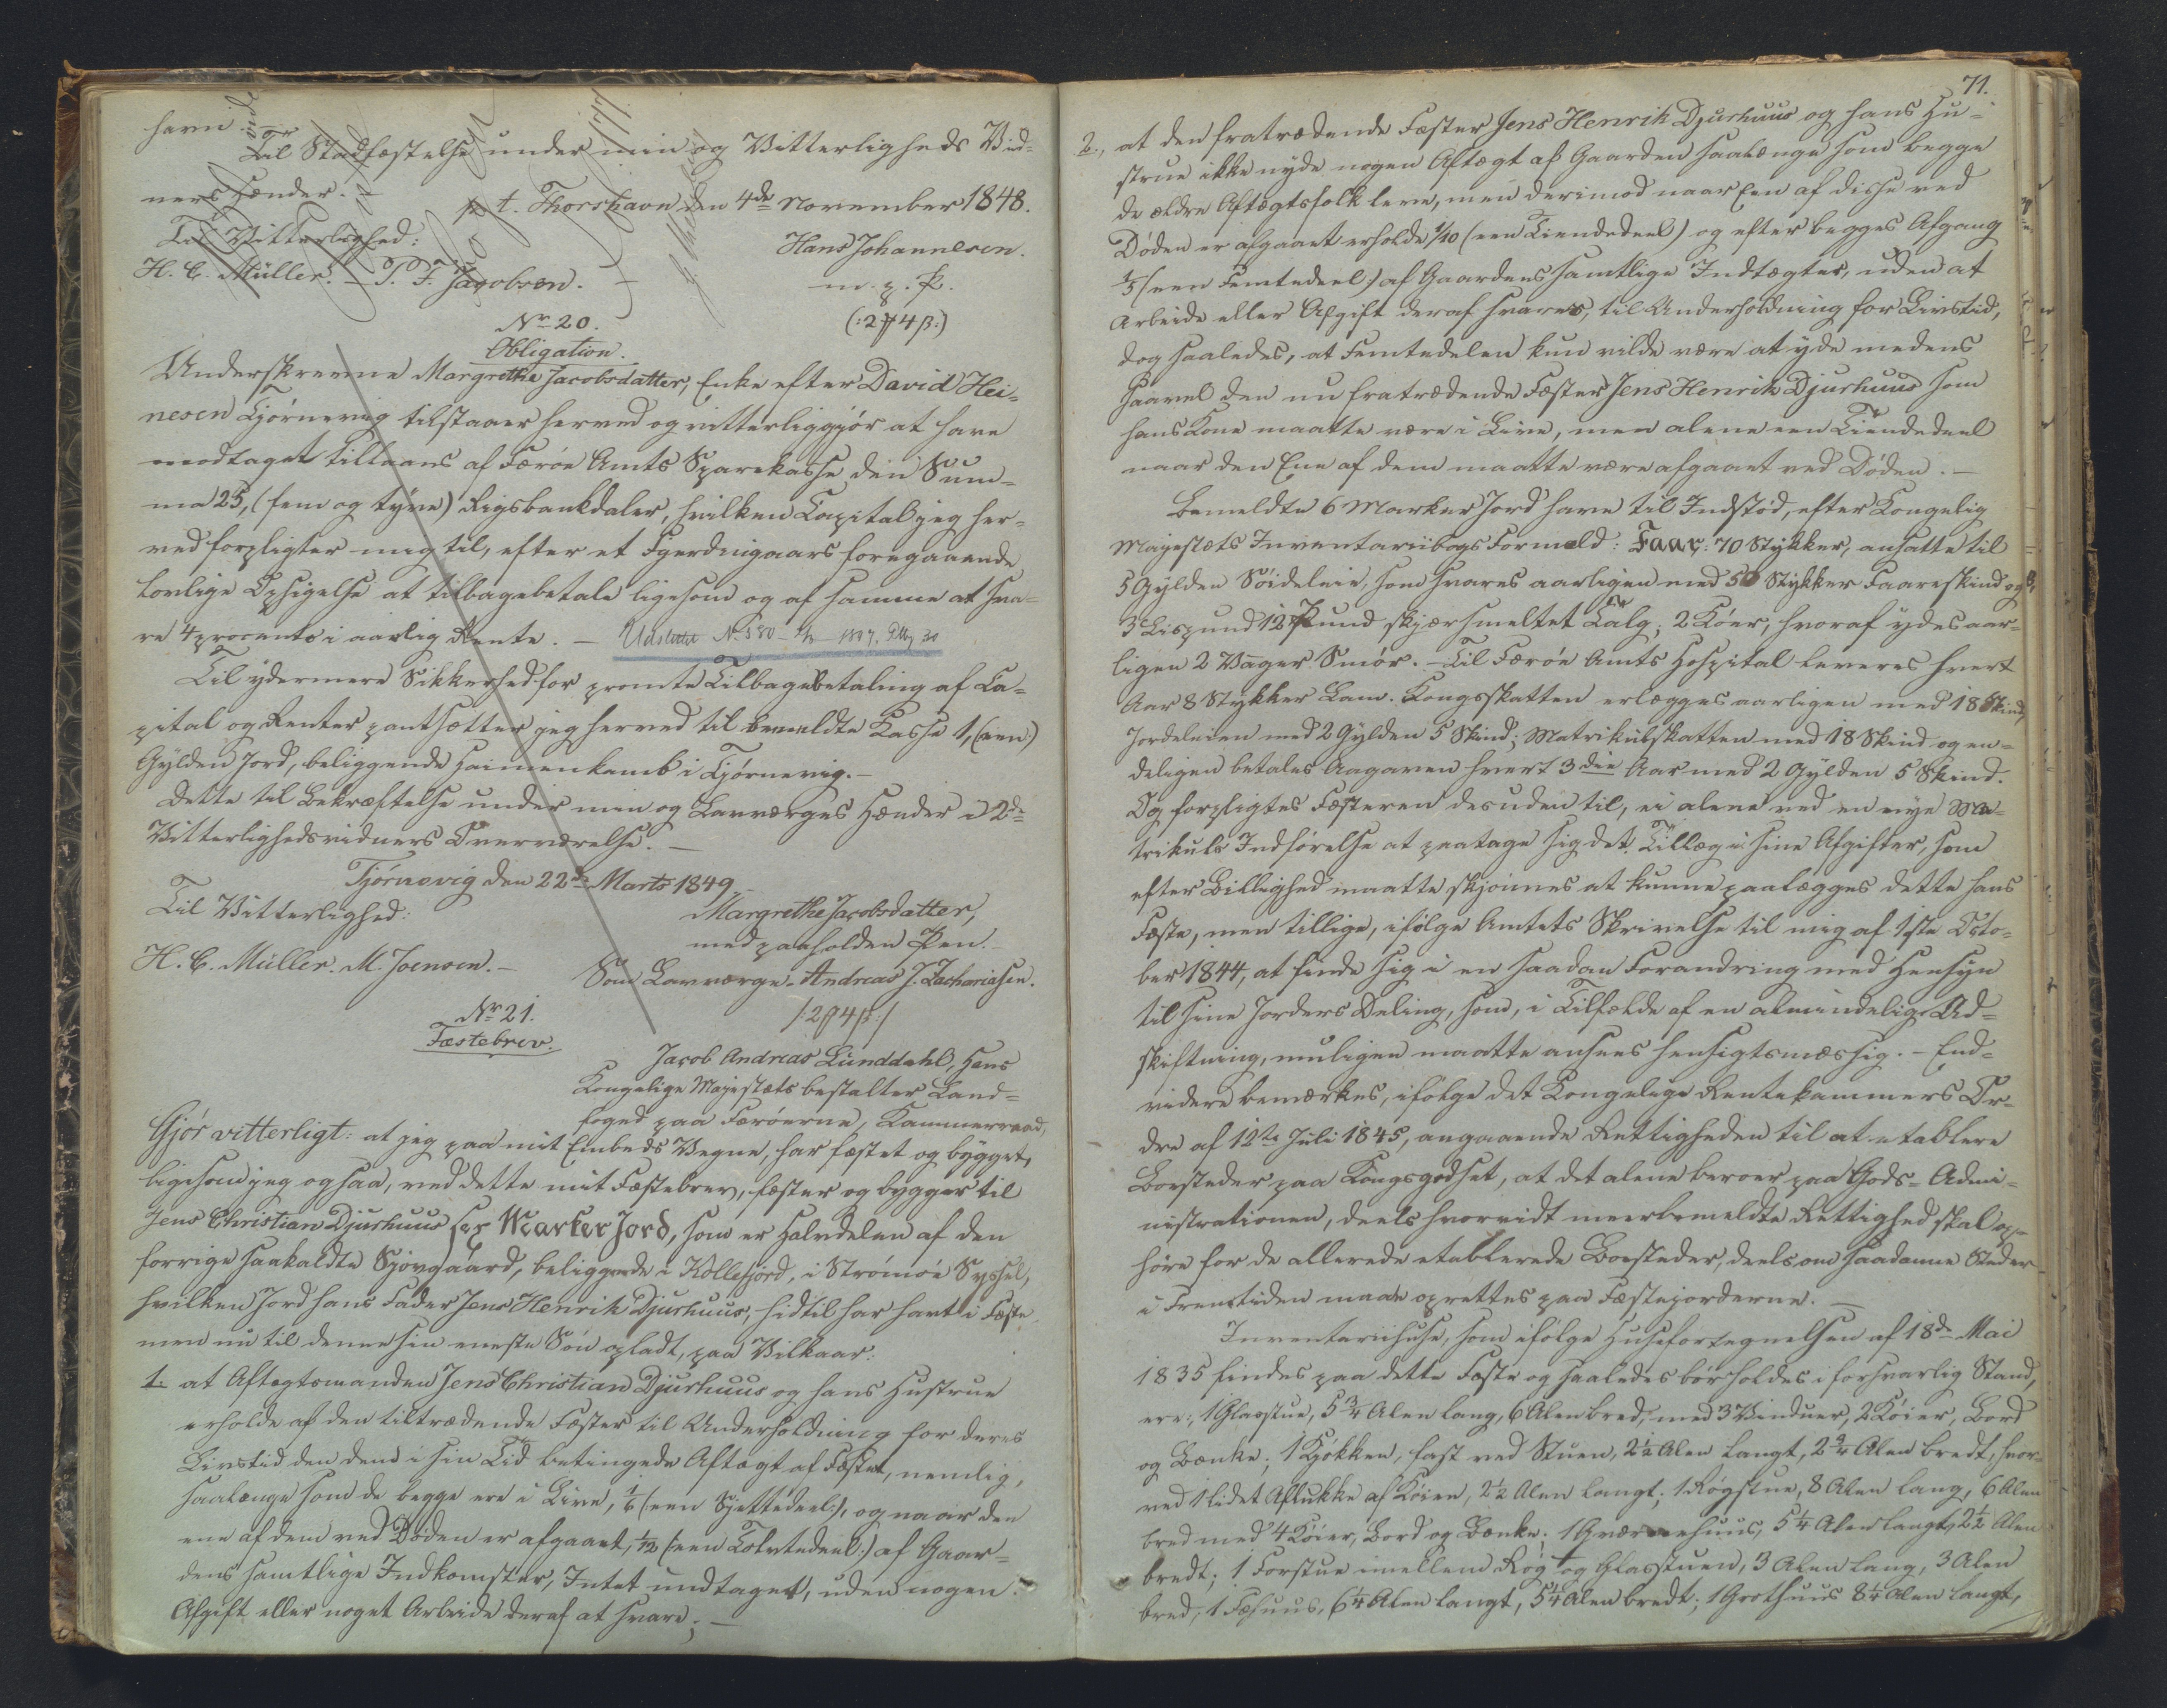 havn. –
Til Stadfæstelse under min og Vitterligheds Vid-
ners Hænder. –
p. t. Thorshavn den 4de November 1848.
Til Vitterlighed:
Hans Johannesen.
H. C. Müller. – P. F. Jacobsen. –
m. p. P.
No 20.
(: 2 β 4 β :)
Obligation.
Underskrevne Margrethe Jacobsdatter, Enke efter David Hei-
nesen Tjørnevig tilstaaer herved og vitterliggjør at have
modtaget tillaans af Færöe Amts Sparekasse den Sum-
ma 25, (fem og tyve) Rigsbankdaler, hvilken Capital jeg her-
ved forpligter mig til, efter et Fjerdingaars foregaaende
lovlige Opsigelse at tilbagebetale ligesom og af samme at sva-
re 4 procento i aarlig Rente. – Udslettet No 380
Til ydermere Sikkerhed for promte Tilbagebetaling af Ca-
pital og Renter pantsætter jeg herved til bemeldte Kasse 1, (een)
Gylden Jord, beliggende Haimenkamb i Tjørnevig. –
Dette til Bekræftelse under min og Lauværges Hænder i 2de
Vitterlighedsvidners Overværelse. –
Tjørnevig den 22de Marts 1849.
Til Vitterlighed:
Margrethe Jacobsdatter,
med paaholden Pen. –
H. C. Müller. M. Joensen. –
Som Lauværge – Andreas J. Zachariasen.
No 21.
/: 2 β 4 β :/
Fæstebrev.
Jacob Andreas Lunddahl, Hans
Kongelige Majestæts bestalter Land-
foged paa Færöerne, Kammerraad,
Gjör vitterligt: at jeg paa mit Embeds Vegne, har fæstet og bygget,
ligesom jeg ogsaa, ved dette mit Fæstebrev, fæster og bygger til
Jens Christian Djurhuus sex Marker Jord, som er Halvdelen af den
forrige saakaldte Sjövgaard, beliggende i Kollefjord, i Strömöe Syssel,
hvilken Jord hans Fader Jens Henrik Djurhuus, hidtil har havt i Fæste
men nu til denne sin eneste Sön opladt, paa Vilkaar:
1. at Aftægtsmanden Jens Christian Djurhuus og hans Hustrue
erholde af den tiltrædende Fæster til Underholdning for deres
Livstid den dem i sin Tid betingede Aftægt af Fæstet, nemlig,
saalænge som de begge ere i Live, 1/6 (een Sjettedeel:), og naar den
ene af dem ved Döden er afgaaet, 1/12 (een Tolvtedeel:) af Gaar-
dens samtlige Indkomster, Intet undtaget, uden nogen
Afgift eller noget Arbeide deraf at svare; –
71.
2., at den fratrædende Fæster Jens Henrik Djurhuus og hans Hu-
strue ikke nyde nogen Aftægt af Gaarden saalænge som begge
de ældre Aftægtsfolk leve, men derimod naar Een af disse ved
Döden er afgaaet erholde 1/10 (een Tiendedeel) og efter begges Afgang
1/5 (een Femtedeel:) af Gaardens samtlige Indtægter, uden at
Arbeide eller Afgift deraf svares, til Underholdning for Livstid,
dog saaledes, at Femtedelen kun vilde være at yde medens
saavel den nu fratrædende Fæster Jens Henrik Djurhuus som
hans Kone maatte være i Live, men alene een Tiendedeel
naar den Ene af dem maatte være afgaaet ved Döden. –
Bemeldte 6 Marker Jord have til Indstöd, efter Kongelig
Majestæts Inventariibogs Formeld: Faar: 70 Stykker, ansatte til
5 Gylden Söideleie, som svares aarligen med 50 Stykker Faareskind og
3 Lispund 12 Pund skjærsmeltet Talg; 2 Köer, hvoraf ydes aar-
ligen 2 Vager Smör. – Til Færöe Amts Hospital leveres hvert
Aar 8 Stykker Lam. Kongsskatten erlægges aarligen med 18 Skind,
Jordeleien med 2 Gylden 5 Skind; Matrikulskatten med 18 Skind og en-
deligen betales Aagaven hvert 3die Aar med 2 Gylden 5 Skind.
Og forpligtes Fæsteren desuden til, ei alene ved en nye Ma-
trikuls Indförelse at paatage sig det Tillæg i sine Afgifter, som
efter Billighed maatte skjönnes at kunne paalægges dette hans
Fæste, men tillige, ifölge Amtets Skrivelse til mig af 1ste Octo-
ber 1844, at finde sig i en saadan Forandring med Hensyn
til sine Jorders Deling, som, i Tilfælde af en almindelig Ud-
skiftning, muligen maatte ansees hensigtsmæssig. – End-
videre bemærkes, ifölge det Kongelige Rentekammers Or-
dre af 12te Juli 1845, angaaende Rettigheden til at etablere
Boesteder paa Kongsgodset, at det alene beroer paa Gods-Admi-
nistrationen, deels hvorvidt meerbemeldte Rettighed skal op-
höre for de allerede etablerede Boesteder, deels om saadanne Steder
i Fremtiden maae oprettes paa Fæstejorderne. –
Inventariihuse, som ifölge Husefortegnelsen af 18de Mai
1835 findes paa dette Fæste og saaledes bör holdes i forsvarlig Stand,
ere:, 1 Glasstue, 5 3/4 Alen lang, 6 Alen bred, med 3 Vinduer, 2 Köier, Bord
og Bænke; 1 Kjökken, fast ved Stuen, 2 1/2 Alen langt, 2 3/4 Alen bredt, hvor-
ved 1 lidet Aflukke af Köien, 2 1/2 Alen langt; 1 Rögstue, 8 Alen lang, 6 Alen
bred med 4 Köier, Bord og Bænke; 1 Qværnehuus, 5 1/4 Alen langt, 2 1/2 Alen
bredt; 1 Forstue imellem Rög- og Glasstuen, 3 Alen lang, 3 Alen
bred, 1 Fæhuus, 6 1/4 Alen langt, 5 1/4 Alen bredt; 1 Grothuus 8 1/4 Alen langt,